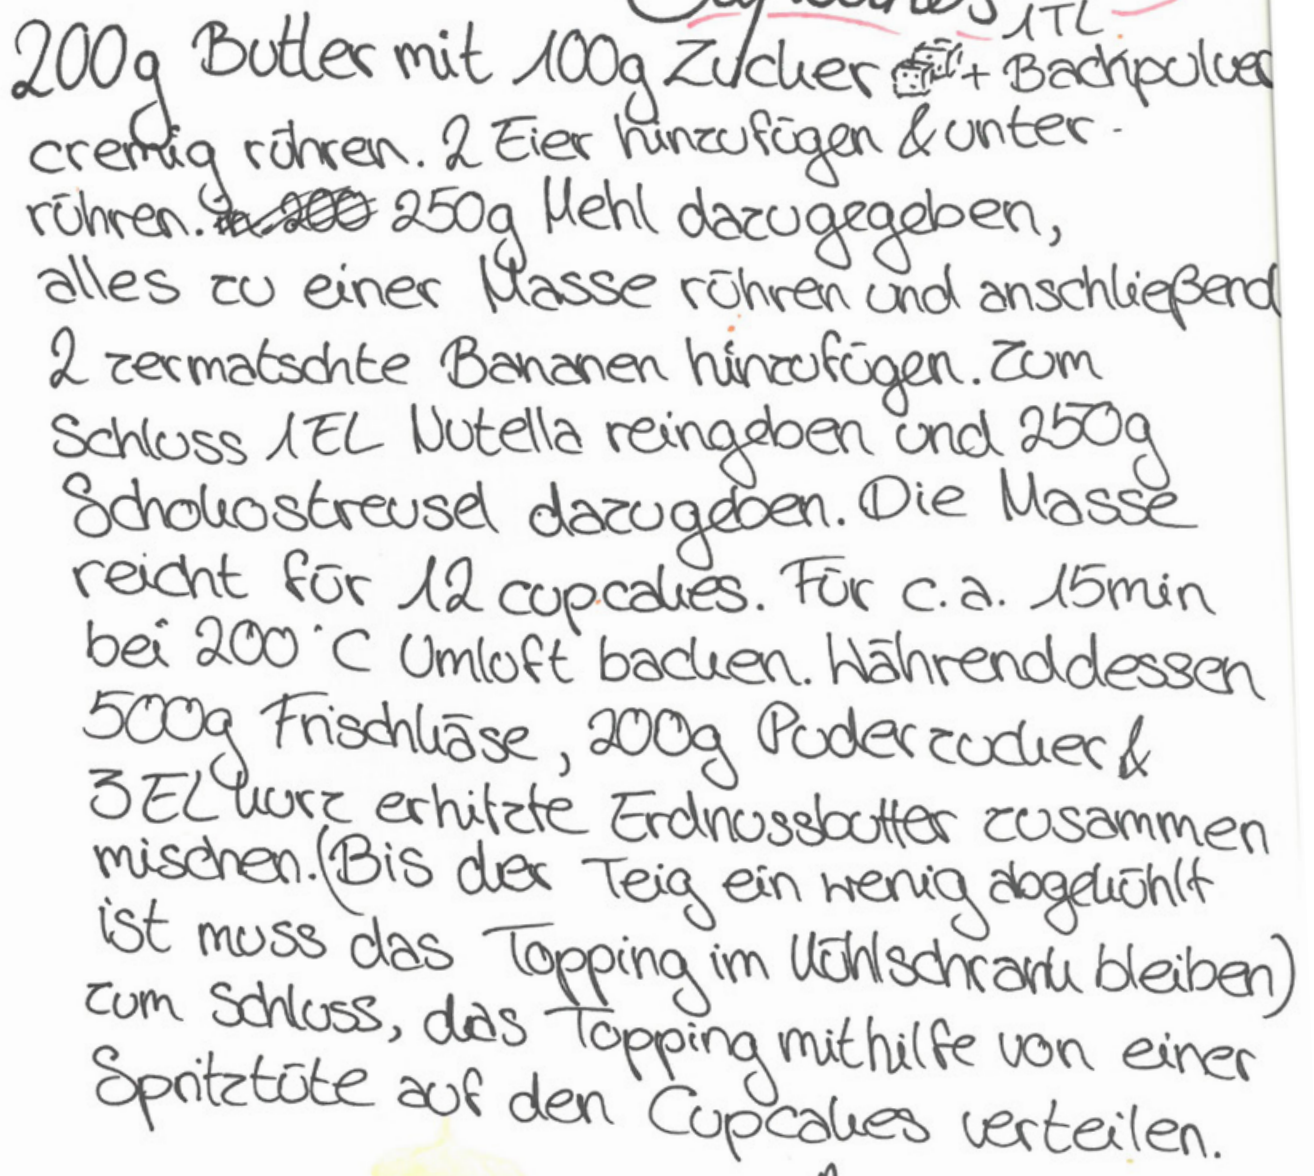 Cupcakes
1TL
200g Butter mit 100g Zucker + Backpulver
cremig rühren. 2 Eier hinzufügen & unter-
rühren. 250g Mehl dazugegeben,
alles zu einer Masse rühren und anschließend
2 zermatschte Bananen hinzufügen. Zum
Schluss 1EL Nutella reingeben und 250g
Schokostreusel dazugeben. Die Masse
reicht für 12 cupcakes. Für c.a. 15min
bei 200°C Umluft backen. Währenddessen
500g Frischkäse, 200g Puderzucker &
3EL kurz erhitzte Erdnussbutter zusammen
mischen. (Bis der Teig ein wenig abgekühlt
ist muss das Topping im Kühlschrank bleiben)
zum Schluss, das Topping mithilfe von einer
Spritztüte auf den Cupcakes verteilen.